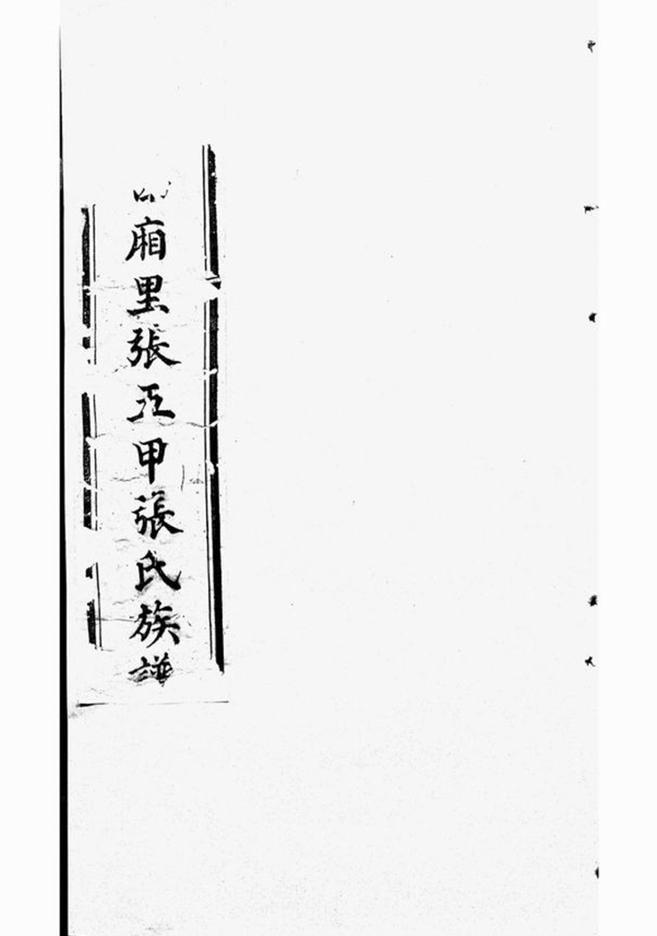 廂里張五甲張氏族譜